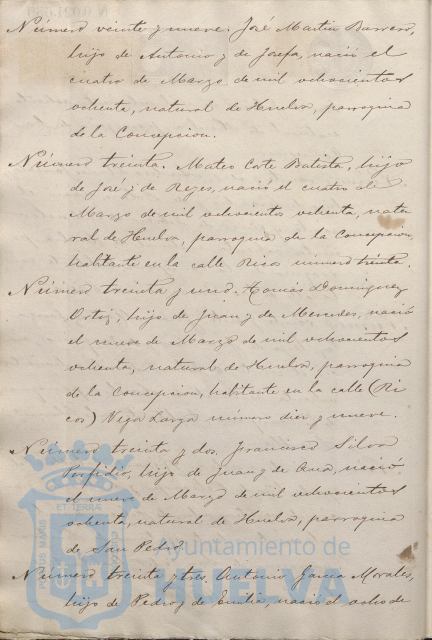 Número veinte y nueve. José Martin Barrero,
hijo de Antonio y de Josefa, nació el
cuatro de Marzo de mil ochocientos
ochenta, natural de Huelva, parroquia
de la Concepcion.
Número treinta. Mateo Corte Batista, hijo
de José y de Reyes, nació el cuatro de
Marzo de mil ochocientos ochenta, natu
ral de Huelva, parroquia de la Concepcion,
habitante en la calle Rico número treinta.
Número treinta y uno. Tomás Dominguez
Ortiz, hijo de Juan y de Mercedes, nació
el nueve de Marzo de mil ochocientos
ochenta, natural de Huelva, parroquia
de la Concepcion, habitante en la calle (Ri
cos) Vega Larga número diez y nueve.
Número treinta y dos. Francisco Silva
hijo de Juan y de Ana, nació
el nueve de Marzo de mil ochocientos
ochenta, natural de Huelva, parroquia
de San Pedro.
Número treinta y tres. Antonio Garcia Morales,
hijo de Pedro y de Emilia, nació el ocho de
Ayuntamiento de
HUELVA
PORTUS MARIS
ET TERRÆ
CUSTODIA